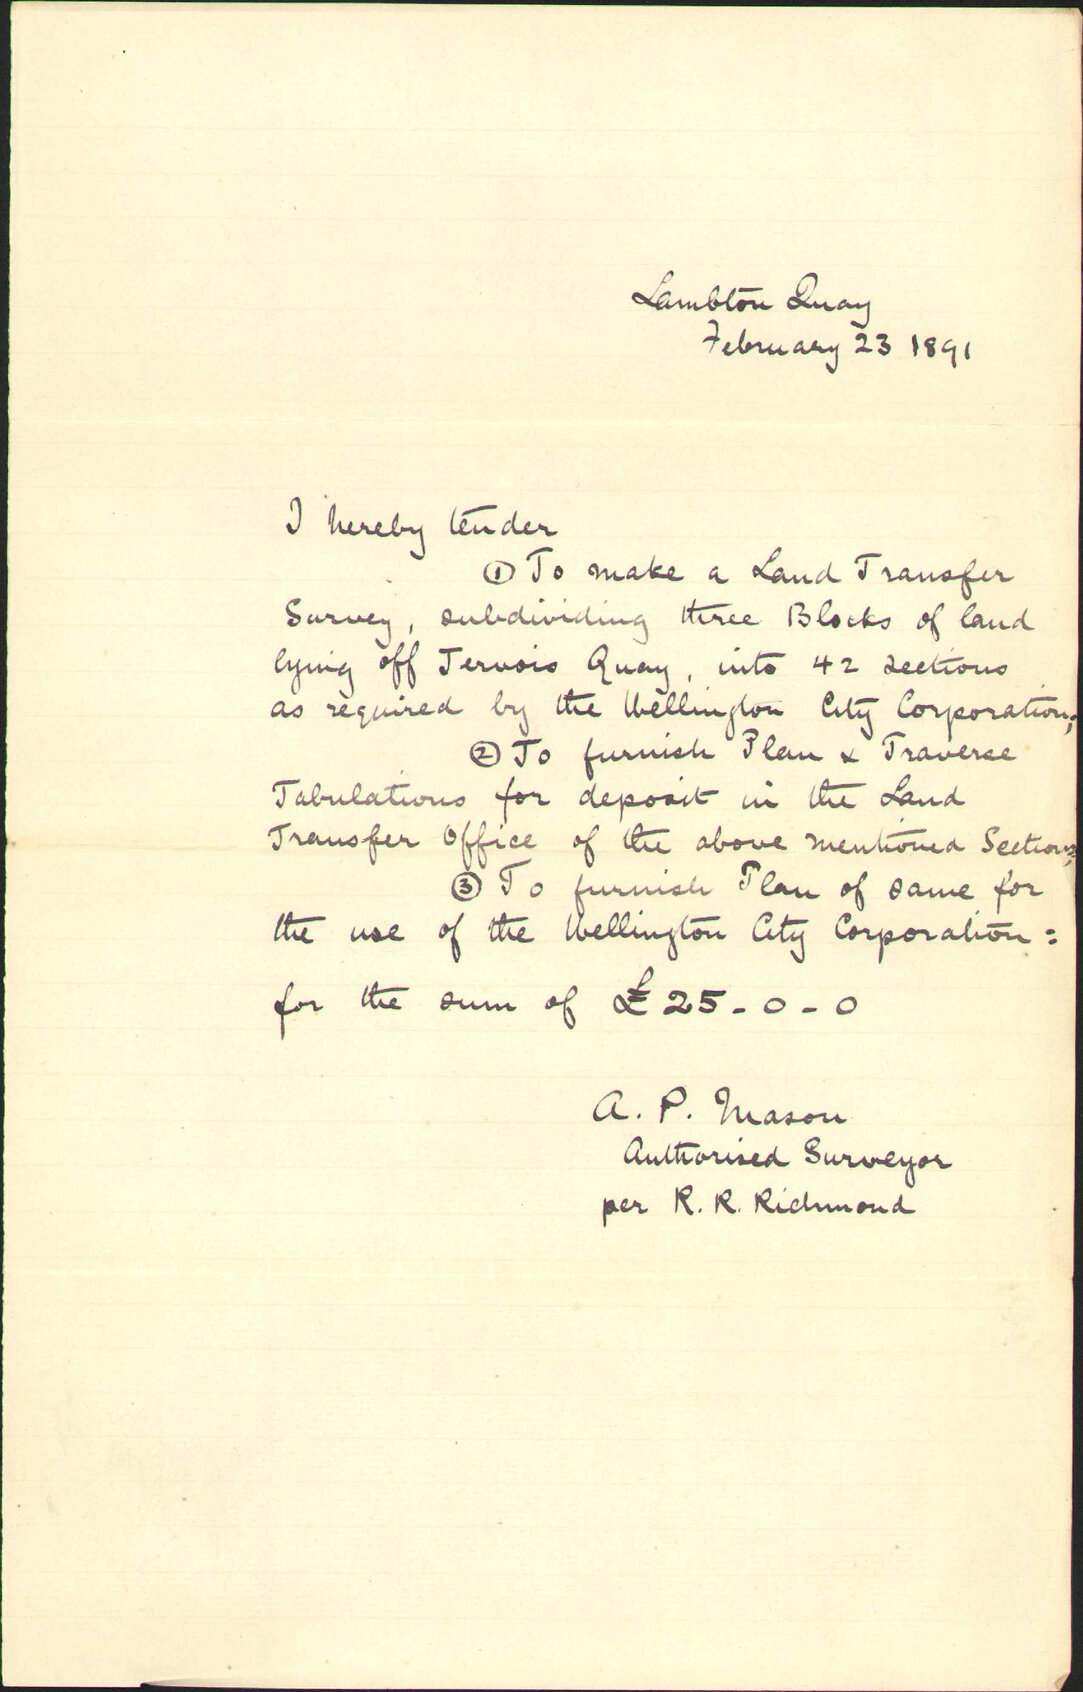 Lambton Quay
February 23 1891
I hereby tender
① To make a Land Transfer
Survey, subdividing three Blocks of land
lying off Jervois Quay, into 42 sections
as required by the Wellington City Corporation;
② To furnish Plan & Traverse
Tabulations for deposit in the Land
Transfer Office of the above mentioned Sections;
③ To furnish Plan of same for
the use of the Wellington City Corporation:
for the sum of £25-0-0
A. P. Mason
Authorised Surveyor
per R. R. Richmond